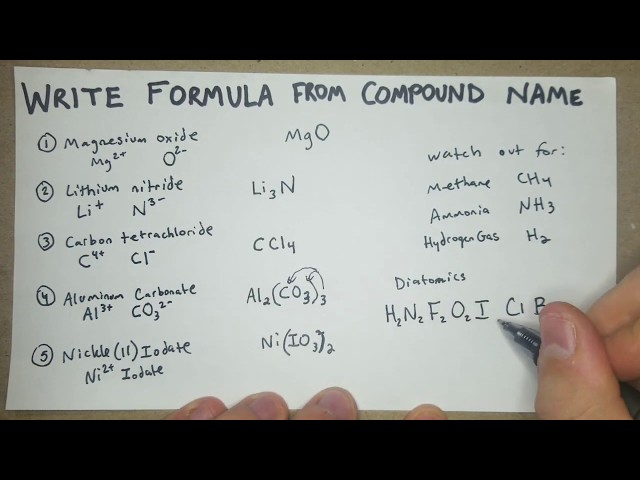 WRITE FORMULA FROM COMPOUND NAME
① Magnesium oxide MgO
Mg²⁺ O²⁻
② Lithium nitride Li₃N
Li⁺ N³⁻
③ Carbon tetrachloride CCl₄
C⁴⁺ Cl⁻
④ Aluminum Carbonate Al₂(CO₃)₃
Al³⁺ CO₃²⁻
⑤ Nickle(II) Iodate Ni(IO₃)₂
Ni²⁺ Iodate
Watch out for:
Methane CH₄
Ammonia NH₃
Hydrogen Gas H₂
Diatomics
H₂N₂F₂O₂I Cl B